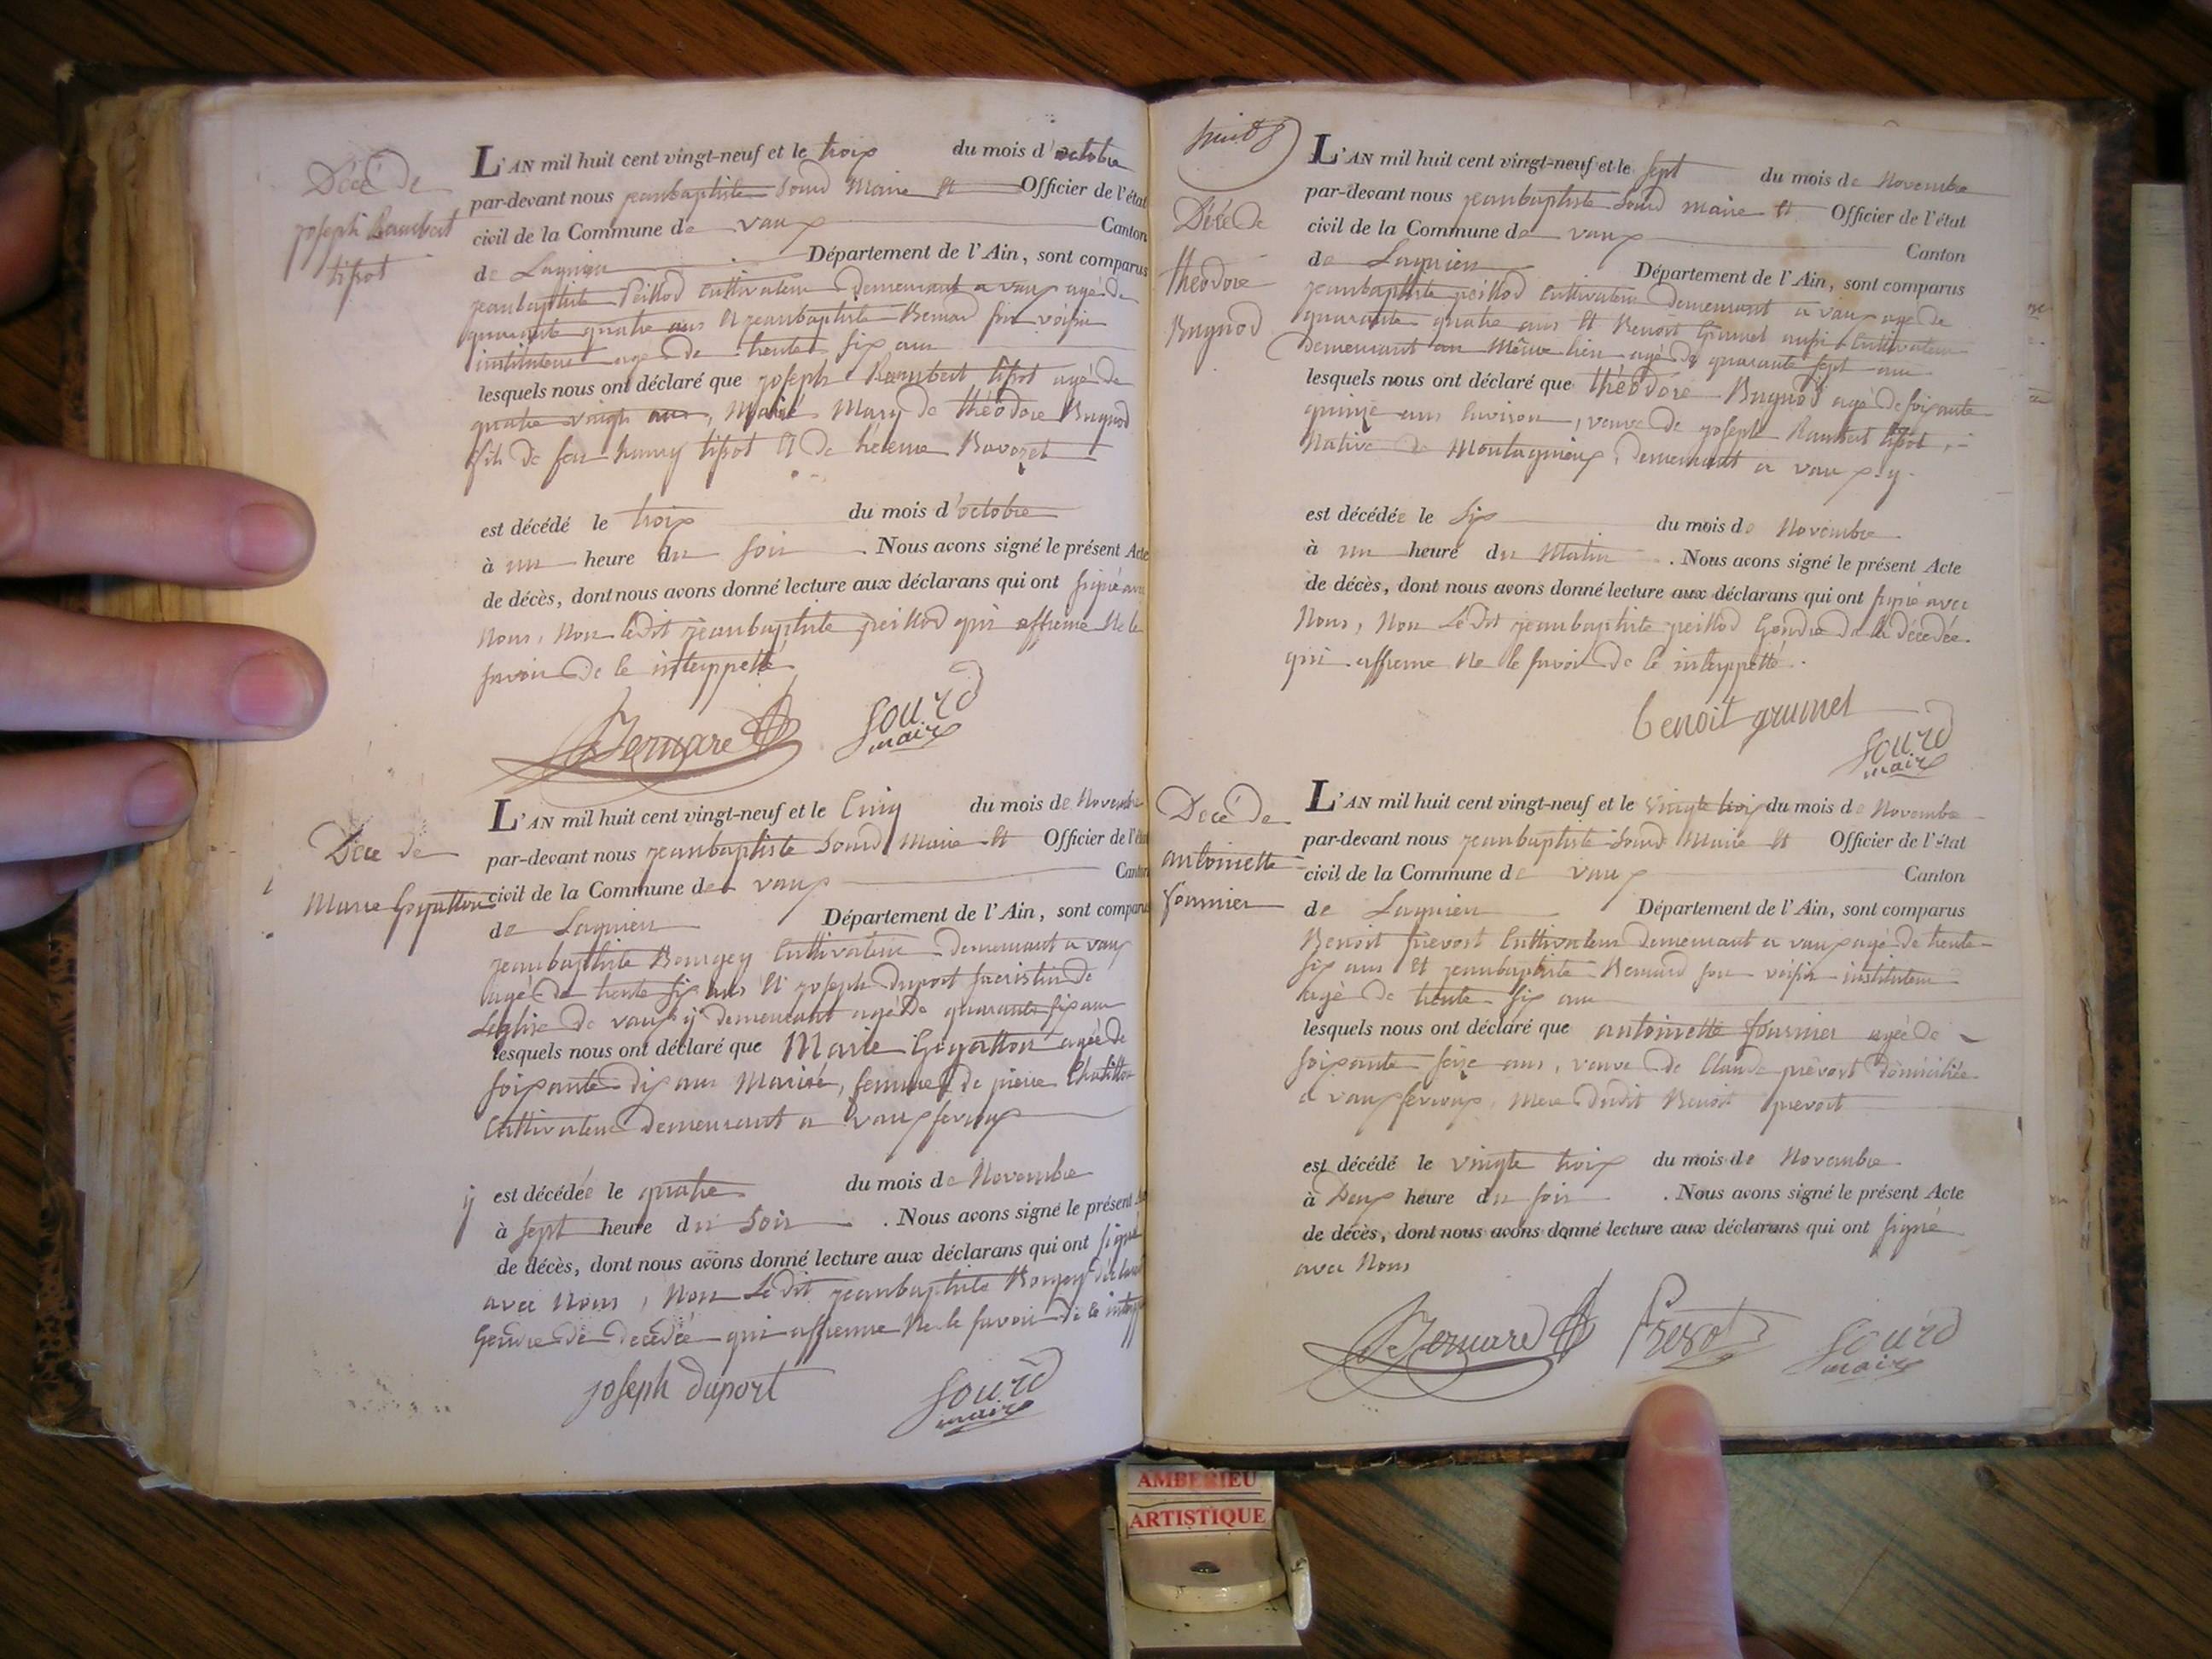 Décé de
joseph Rambert
tissot
L'AN mil huit cent vingt-neuf et le trois du mois d'octobre
par-devant nous jeanbaptiste Sourd Maire et Officier de l'état
civil de la Commune de vaux Canton
de Lagnieu Département de l'Ain, sont comparus
jeanbaptiste Peillod Cultivateur demeurant a vaux agé de
quarante quatre ans et jeanbaptiste Bernard son voisin
instituteur agé de trente six ans
lesquels nous ont déclaré que joseph Rambert tissot agé de
quatre vingts ans, Marié Mary de théodore Bugnod
fils de feu tissot et de hélène
est décédé le trois du mois d'octobre
à un heure du soir . Nous avons signé le présent Acte
de décès, dont nous avons donné lecture aux déclarans qui ont signé avec
Nous, Non ledit jeanbaptiste peillod qui afferme Ne le
savoir de le interppellé
Bernard Sourd
maire
Déce de
Marie Goyatton
L'AN mil huit cent vingt-neuf et le Cinq du mois de Novembre
par-devant nous jeanbaptiste Sourd Maire et Officier de l'état
civil de la Commune de vaux Canton
de Lagnieu Département de l'Ain, sont comparus
jeanbaptiste Bourgey Cultivateur demeurant a vaux
agé de trente six ans et joseph duport sacristin de
Leglise de vaux y demeurant agé de quarante six ans
lesquels nous ont déclaré que Marie Goyatton agée de
soixante dix ans Marié, femme de pierre Chatillon
Cultivateur demeurant a vaux fevroux
y est décédée le quatre du mois de Novembre
à sept heure du Soir . Nous avons signé le présent
de décès, dont nous avons donné lecture aux déclarans qui ont signé
avec Nous, Non Ledit jeanbaptiste Bourgey
Gendre de decedée qui afferme Ne le savoir de le
joseph duport Sourd
maire
Décé de
théodore
Bugnod
L'AN mil huit cent vingt-neuf et le sept du mois de Novembre
par-devant nous jeanbaptiste Sourd maire et Officier de l'état
civil de la Commune de vaux Canton
de Lagnieu Département de l'Ain, sont comparus
jeanbaptiste peillod Cultivateur demeurant a vaux agé de
quarante quatre ans et Benoit Grumel aussi Cultivateur
demeurant au Même lieu agé de quarante sept ans
lesquels nous ont déclaré que théodore Bugnod agé de soixante
quinze ans environ, veuve de joseph Rambert tissot,
Native de Montagnieux, demeurant a vaux y
est décédée le Six du mois de Novembre
à un heure du Matin . Nous avons signé le présent Acte
de décès, dont nous avons donné lecture aux déclarans qui ont signé avec
Nous, Non Ledit jeanbaptiste peillod Gendre de la décedée
qui afferme Ne le savoir de le interppellé.
benoit grumel
Sourd
maire
Décé de
antoinette
fournier
L'AN mil huit cent vingt-neuf et le vingte trois du mois de Novembre
par-devant nous jeanbaptiste Sourd Maire et Officier de l'état
civil de la Commune de vaux Canton
de Lagnieu Département de l'Ain, sont comparus
Benoit prevost Cultivateur demeurant a vaux agé de trente
six ans et jeanbaptiste Bernard son voisin instituteur
agé de trente six ans
lesquels nous ont déclaré que antoinette fournier agée de
soixante seize ans, veuve de Claude prévost domiciliée
a vaux fevroux, mere dudit Benoit prevost
est décédé le vingte trois du mois de Novembre
à Deux heure du soir . Nous avons signé le présent Acte
de décès, dont nous avons donné lecture aux déclarans qui ont signé
avec Nous
Bernard Prevot Sourd
maire
AMBERIEU
ARTISTIQUE